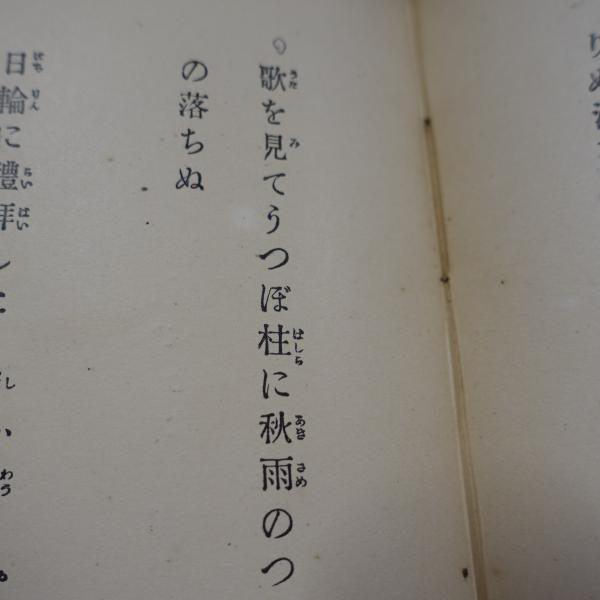 りぬ
歌を見てうつぼ柱に秋雨のつ
の落ちぬ
日輪に禮拜し